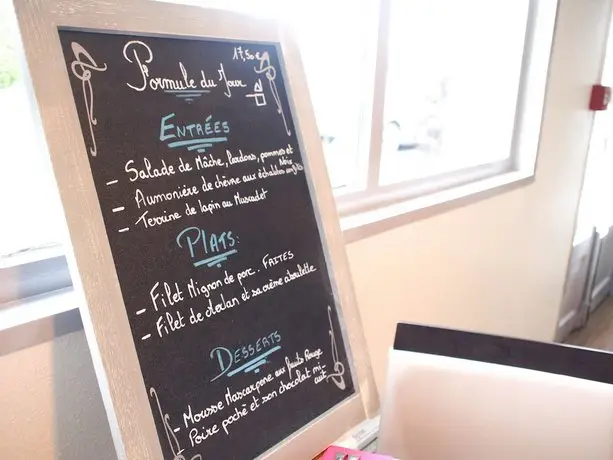 17,50€
Formule du Jour
ENTRÉES
- Salade de Mâche, lardons, pommes et Noix
- Aumonière de chèvre aux échalotes confites
- Terrine de lapin au Muscadet
PLATS:
- Filet Mignon de porc. FRITES
- Filet de Merlan et sa crème ciboulette
DESSERTS
- Mousse Mascarpone aux fruits Rouge
- Poire poché et son chocolat mi
nuit